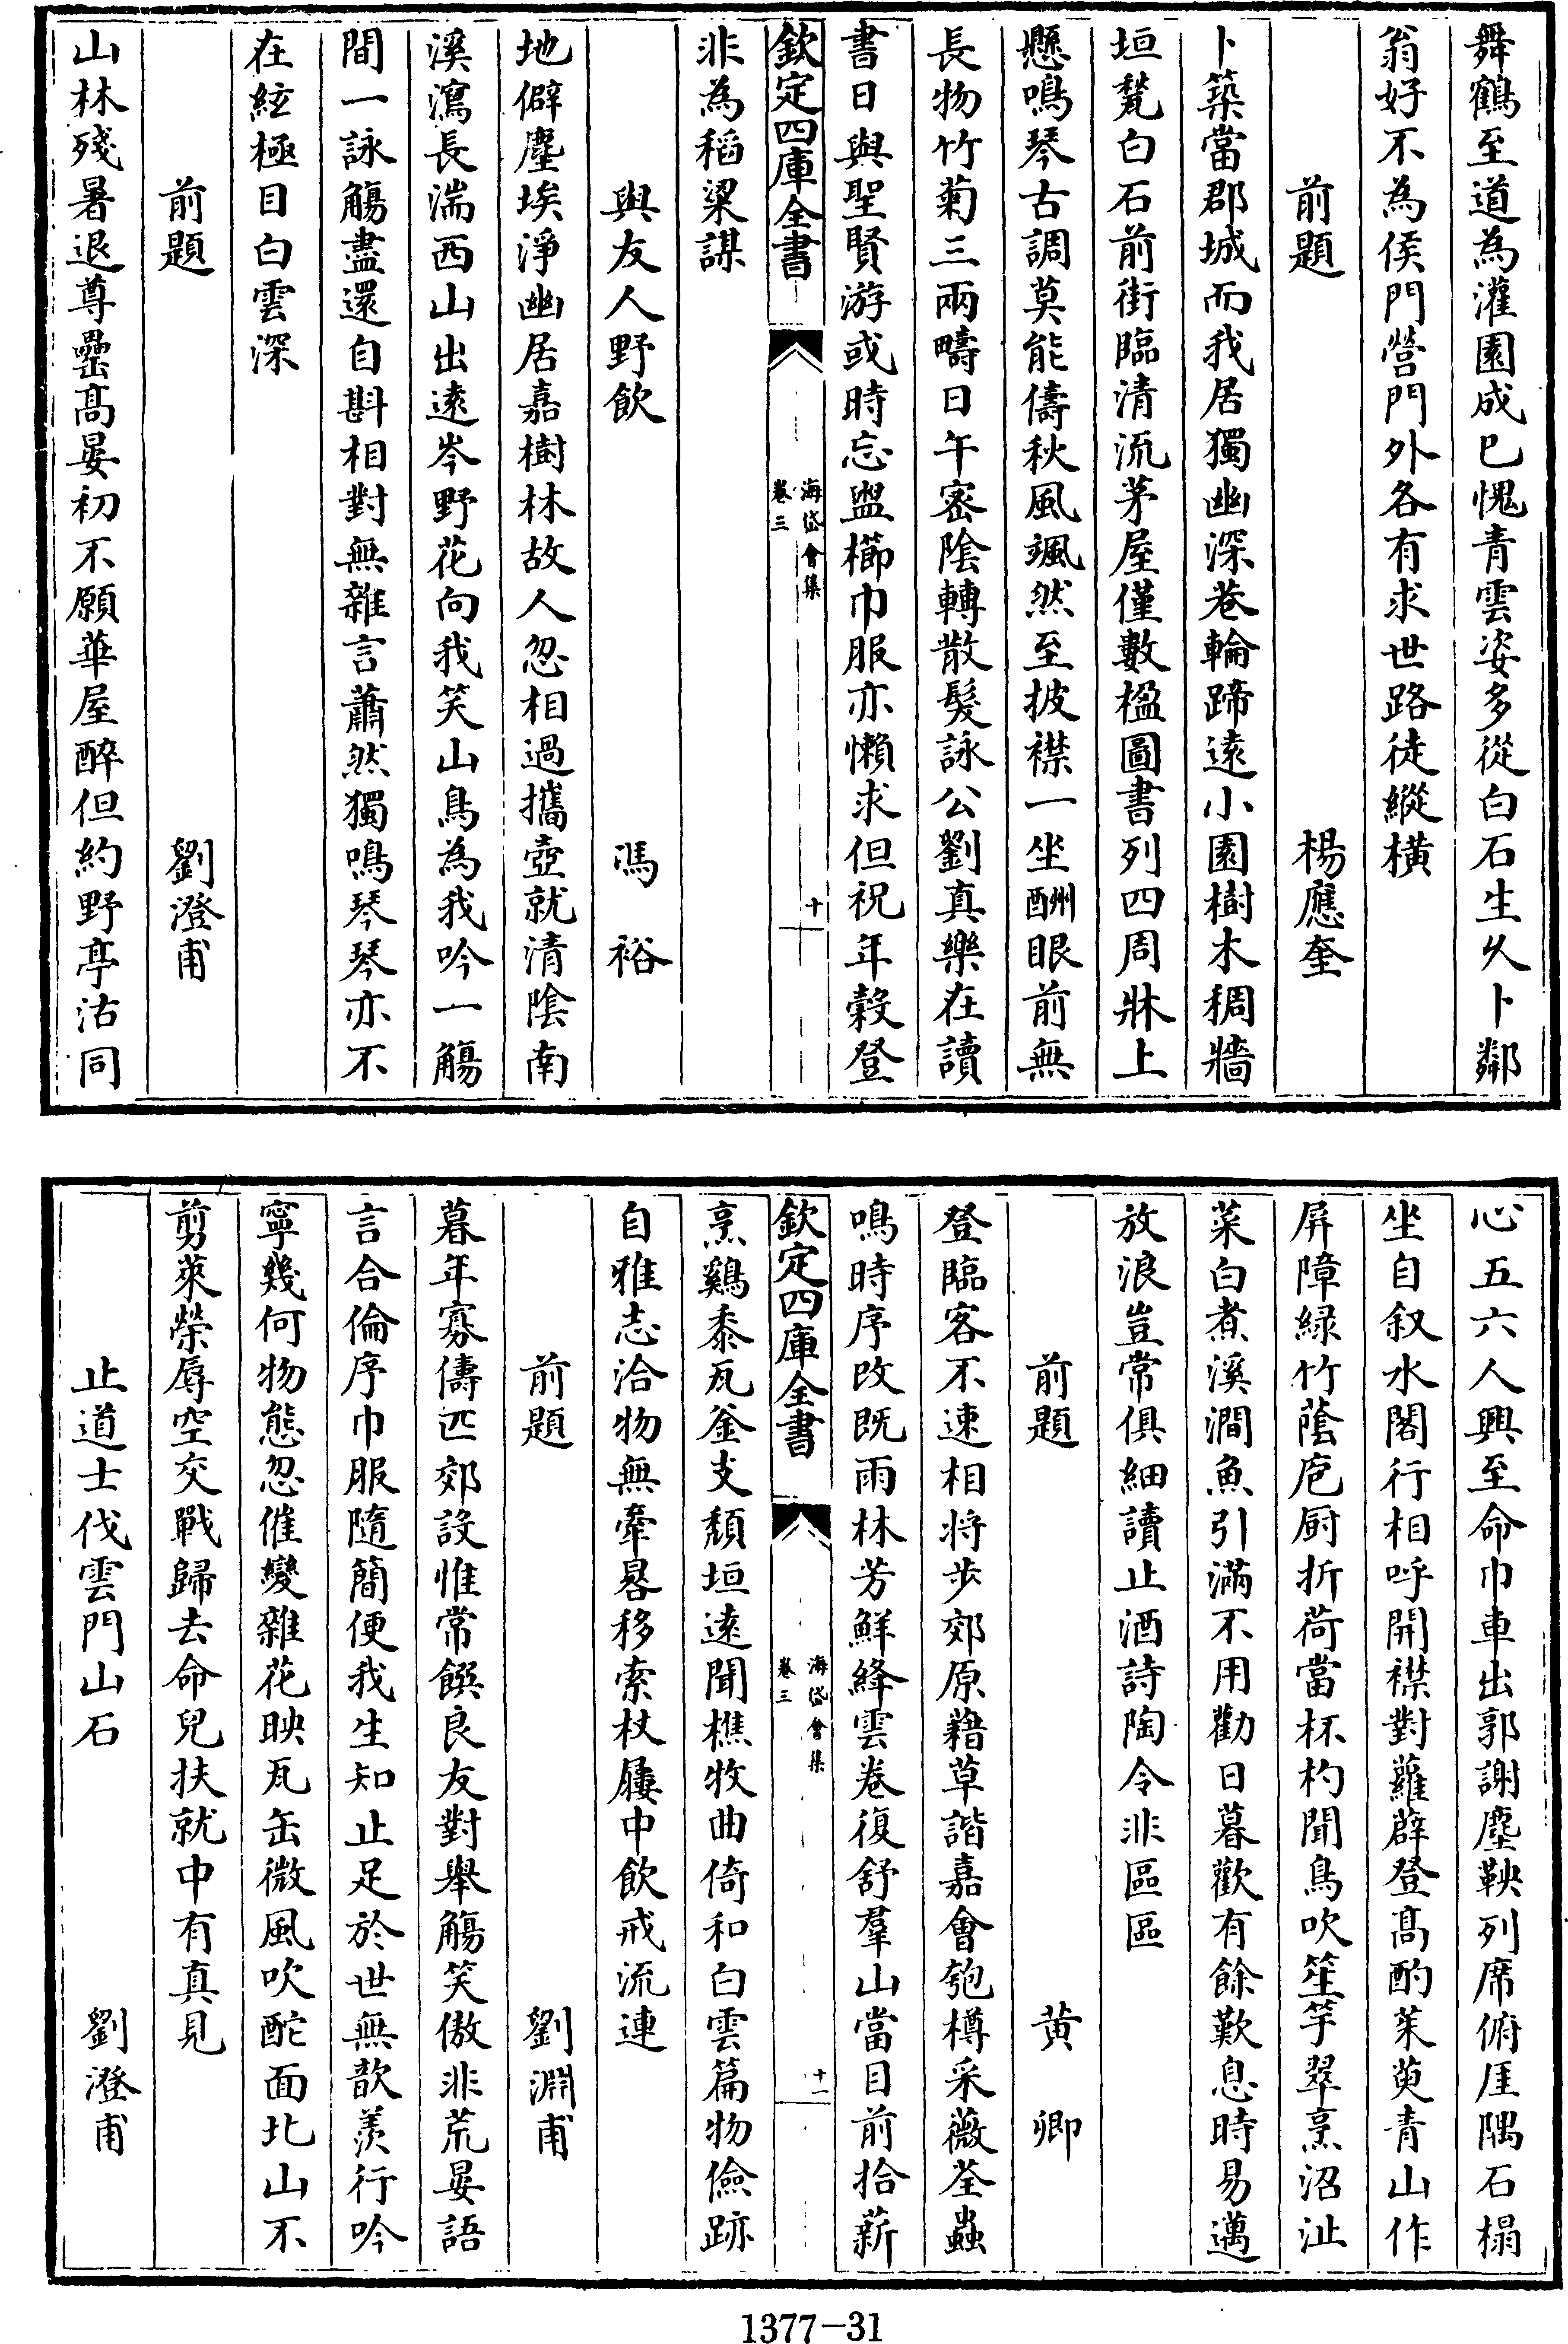 舞鶴至道為灌園成已愧青雲姿多從白石生久卜鄰
翁好不為侯門營門外各有求世路徒縱橫
前題　楊應奎
卜築當郡城而我居獨幽深巷輪蹄遠小園樹木稠牆
垣甃白石前街臨清流茅屋僅數楹圖書列四周牀上
懸鳴琴古調莫能儔秋風颯然至披襟一坐酬眼前無
長物竹菊三兩疇日午密陰轉散髮詠公劉真樂在讀
書日與聖賢游或時忘盥櫛巾服亦懶求但祝年穀登
欽定四庫全書　海岱會集卷三　十
非為稻粱謀
與友人野飲　馮裕
地僻塵埃淨幽居嘉樹林故人忽相過攜壺就清陰南
溪瀉長湍西山出遠岑野花向我笑山鳥為我吟一觴
間一詠觴盡還自斟相對無雜言蕭然獨鳴琴琴亦不
在絃極目白雲深
前題　劉澄甫
山林殘暑退尊罍高晏初不願華屋醉但約野亭沽同
心五六人興至命巾車出郭謝塵鞅列席俯厓隅石榻
坐自叙水閣行相呼開襟對蘿薜登高酌茱萸青山作
屏障綠竹蔭庖厨折荷當杯杓聞鳥吹笙竽翠烹沼沚
菜白煮溪澗魚引滿不用勸日暮歡有餘歎息時易邁
放浪豈常俱細讀止酒詩陶令非區區
前題　黃卿
登臨客不速相將步郊原藉草諧嘉會匏樽采薇荃蟲
鳴時序改既雨林芳鮮絳雲卷復舒羣山當目前拾薪
欽定四庫全書　海岱會集卷三　十一
烹鷄黍瓦釜支頹垣遠聞樵牧曲倚和白雲篇物儉跡
自雅志洽物無牽晷移索杖屨中飲戒流連
前題　劉淵甫
暮年寡儔匹郊設惟常饌良友對舉觴笑傲非荒晏語
言合倫序巾服隨簡便我生知止足於世無歆羨行吟
寧幾何物態忽催變雜花映瓦缶微風吹酡面北山不
剪萊榮辱空交戰歸去命兒扶就中有真見
止道士伐雲門山石　劉澄甫
1377-31